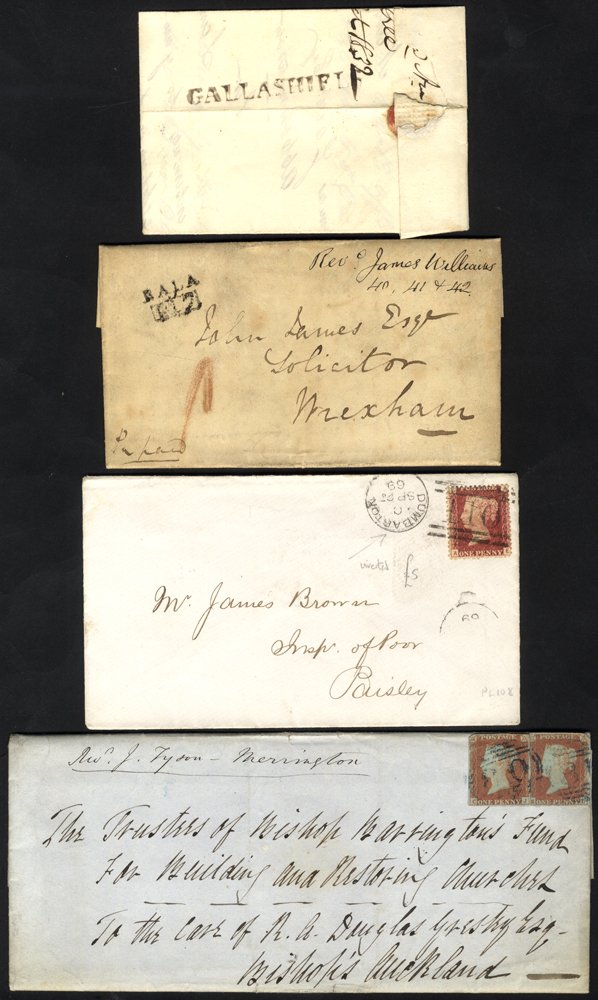 GALLASHIELS
BALA
Revd. James Williams
40, 41 & 42
John James Esqr
Solicitor
Wrexham
Pr paid
DUMBARTON
C
SP 27
69
ONE PENNY
inverted
£5
Mr. James Brown
Insp. of Poor
Paisley
PL 108
Revd. J. Tyson - Merrington
POSTAGE
ONE PENNY
The Trustees of Bishop Barrington's Fund
For Building and Restoring Churches
To the Care of R. A. Douglas Gresley Esq-
Bishop's Auckland